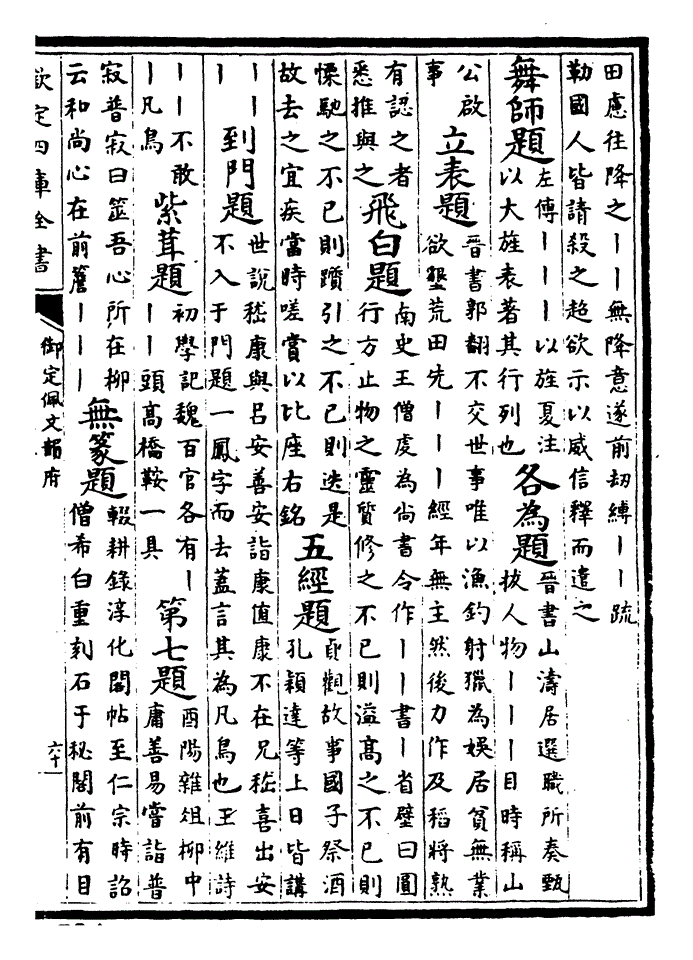 田慮往降之丨丨無降意遂前劫縛丨丨疏
勒國人皆請殺之超欲示以威信釋而遣之
舞師題
左傳丨丨丨以旌夏注
以大旌表著其行列也
各為題
晉書山濤居選職所奏甄
拔人物丨丨丨目時稱山
公啟
事
立表題
晉書郭翻不交世事唯以漁釣射獵為娛居貧無業
欲墾荒田先丨丨丨經年無主然後力作及稻將熟
有認之者
悉推與之
飛白題
南史王僧虔為尚書令作丨丨書丨省壁曰圓
行方止物之靈質修之不已則溢高之不已則
慄馳之不已則躓引之不已則迭是
故去之宜疾當時嗟賞以比座右銘
五經題
貞觀故事國子祭酒
孔穎達等上日皆講
丨丨
丨
到門題
世說嵇康與呂安善安詣康值康不在兄嵇喜出安
不入于門題一鳳字而去蓋言其為凡鳥也王維詩
丨丨不敢
丨凡鳥
紫茸題
初學記魏百官各有丨
丨丨頭高橋鞍一具
第七題
酉陽雜俎柳中
庸善易嘗詣普
寂普寂曰筮吾心所在柳
云和尚心在前簷丨丨丨
無篆題
輟耕錄淳化閣帖至仁宗時詔
僧希白重刻石于秘閣前有目
欽定四庫全書
御定佩文韻府
六十一